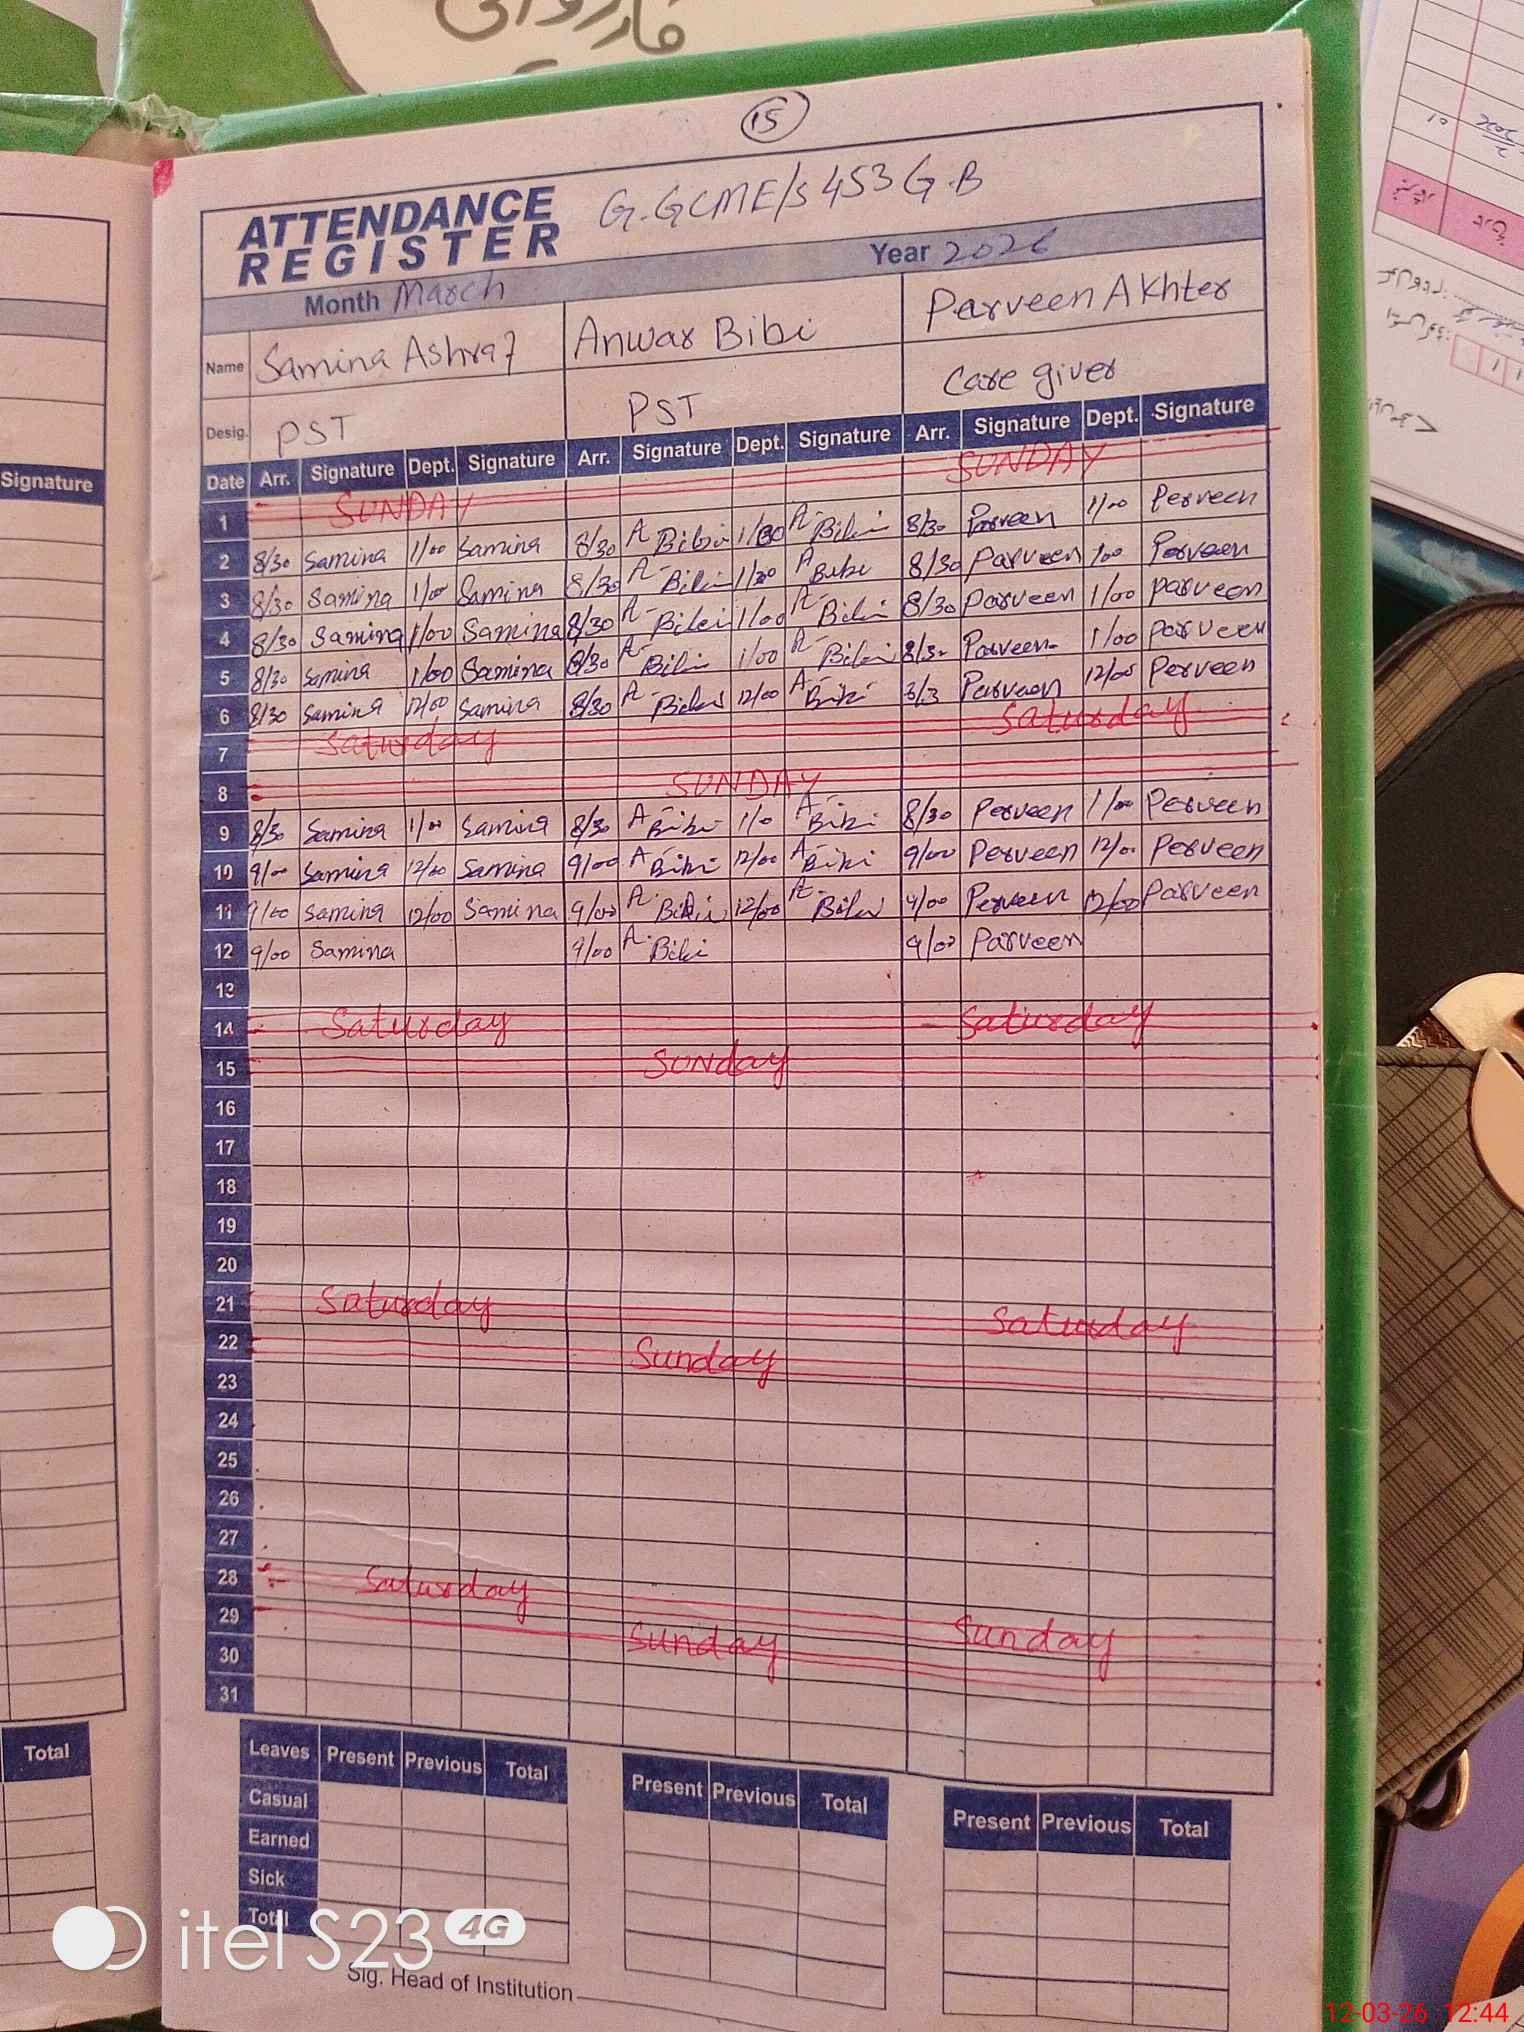 15
ATTENDANCE
REGISTER
G.GCME/s 453 G.B
Month March Year 2026
Name Samina Ashraf Anwar Bibi Parveen Akhter
Desig. PST PST Care giver
Date Arr. Signature Dept. Signature Arr. Signature Dept. Signature Arr. Signature Dept. Signature
1 SUNDAY SUNDAY
2 8/30 Samina 1/00 Samina 8/30 A-Bibi A-Bibi 8/30 Parveen 1/00 Perveen
3 8/30 Samina 1/00 Samina 8/30 A-Bibi A Bibi 8/30 Parveen 1/00 Parveen
4 8/30 Samina 1/00 Samina 8/30 A-Bibi 1/00 A-Bibi 8/30 Parveen 1/00 parveen
5 8/30 Samina 1/00 Samina 8/30 A-Bibi 1/00 A-Bibi 8/30 Parveen 1/00 parveen
6 8/30 Samina 12/00 Samina 8/30 A-Bibi 12/00 A-Bibi Parveen 12/00 Perveen
7 Saturday Saturday
8 SUNDAY
9 8/30 Samina 1/00 Samina 8/30 A-Bibi 1/0 A-Bibi 8/30 Perveen 1/00 Perveen
10 9/00 Samina 12/00 Samina 9/00 A-Bibi 12/00 A-Bibi 9/00 Perveen 12/00 Perveen
11 9/00 Samina 12/00 Samina 9/00 A-Bibi 12/00 A-Bibi 9/00 Perveen 12/00 Parveen
12 9/00 Samina 9/00 A-Bibi 9/00 Parveen
13
14 Saturday Saturday
15 SUNday
16
17
18
19
20
21 Saturday Saturday
22 Sunday
23
24
25
26
27
28 Saturday
29 Sunday Sunday
30
31
Leaves Present Previous Total Present Previous Total Present Previous Total
Casual
Earned
Sick
Total
Sig. Head of Institution
Signature
Total
itel S23 4G
12-03-26 12:44